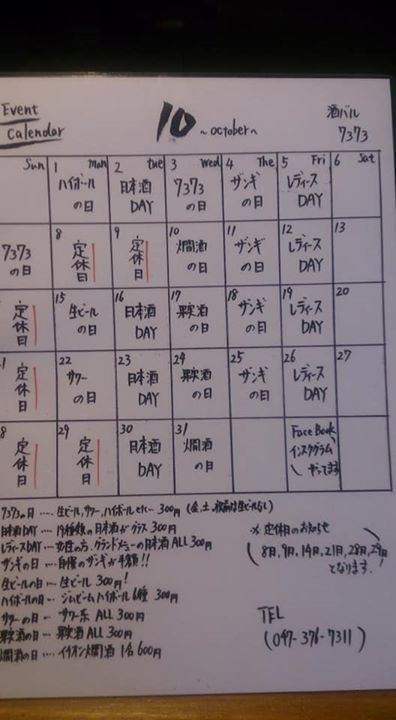 Event
Calendar
10 ~october~
酒バル
7373
Sun 1 Mon 2 tue 3 Wed 4 The 5 Fri 6 Sat
ハイボールの日 日本酒DAY 7373の日 ザンギの日 レディースDAY
8 9 10 11 12 13
7373の日 定休日 定休日 燗酒の日 ザンギの日 レディースDAY
15 16 17 18 19 20
定休日 生ビールの日 日本酒DAY 果実酒の日 ザンギの日 レディースDAY
22 23 24 25 26 27
定休日 サワーの日 日本酒DAY 果実酒の日 ザンギの日 レディースDAY
29 30 31
定休日 定休日 日本酒DAY 燗酒の日
FaceBook
インスタグラム
やってます
7373の日 … 生ビール,サワー,ハイボールetc… 300円
日本酒DAY … 19種類の日本酒がグラス 300円
レディースDAY … 女性の方、グランドメニューの日本酒 ALL 300円
ザンギの日 … 自慢のザンギが半額!!
生ビールの日 … 生ビール 300円!
ハイボールの日 … ジムビームハイボール6種 300円
サワーの日 … サワー系 ALL 300円
果実酒の日 … 果実酒 ALL 300円
燗酒の日 … 燗酒 1合 600円
※定休日のお知らせ
(8日,9日,14日,21日,28日,29日
となります!)
TEL
(047-376-7311)